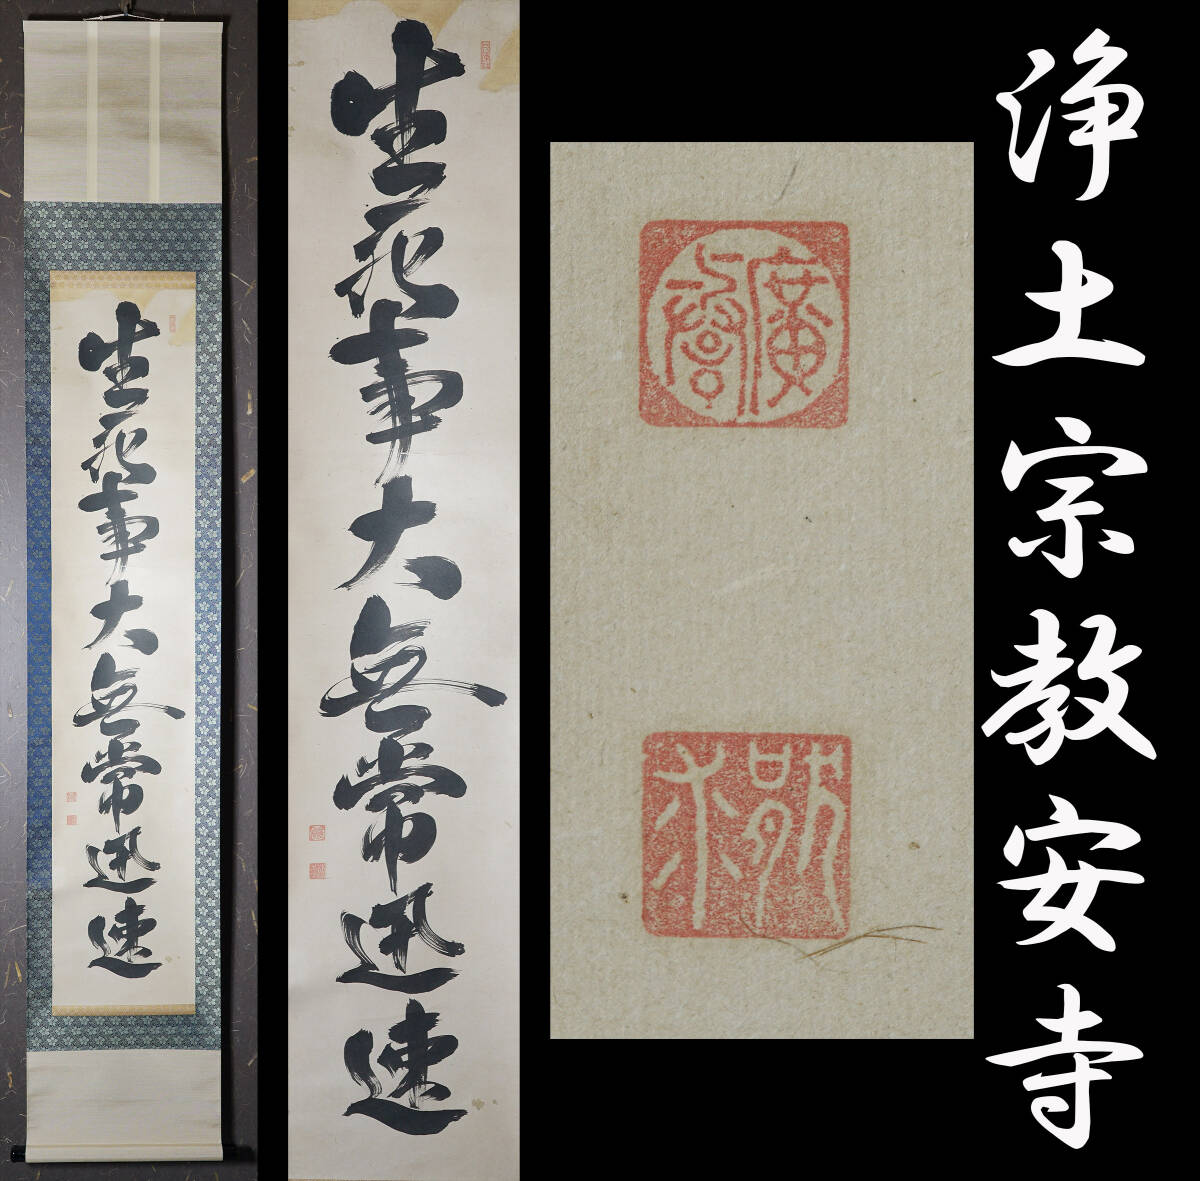 生死事大無常迅速
生死事大無常迅速
浄土宗教安寺